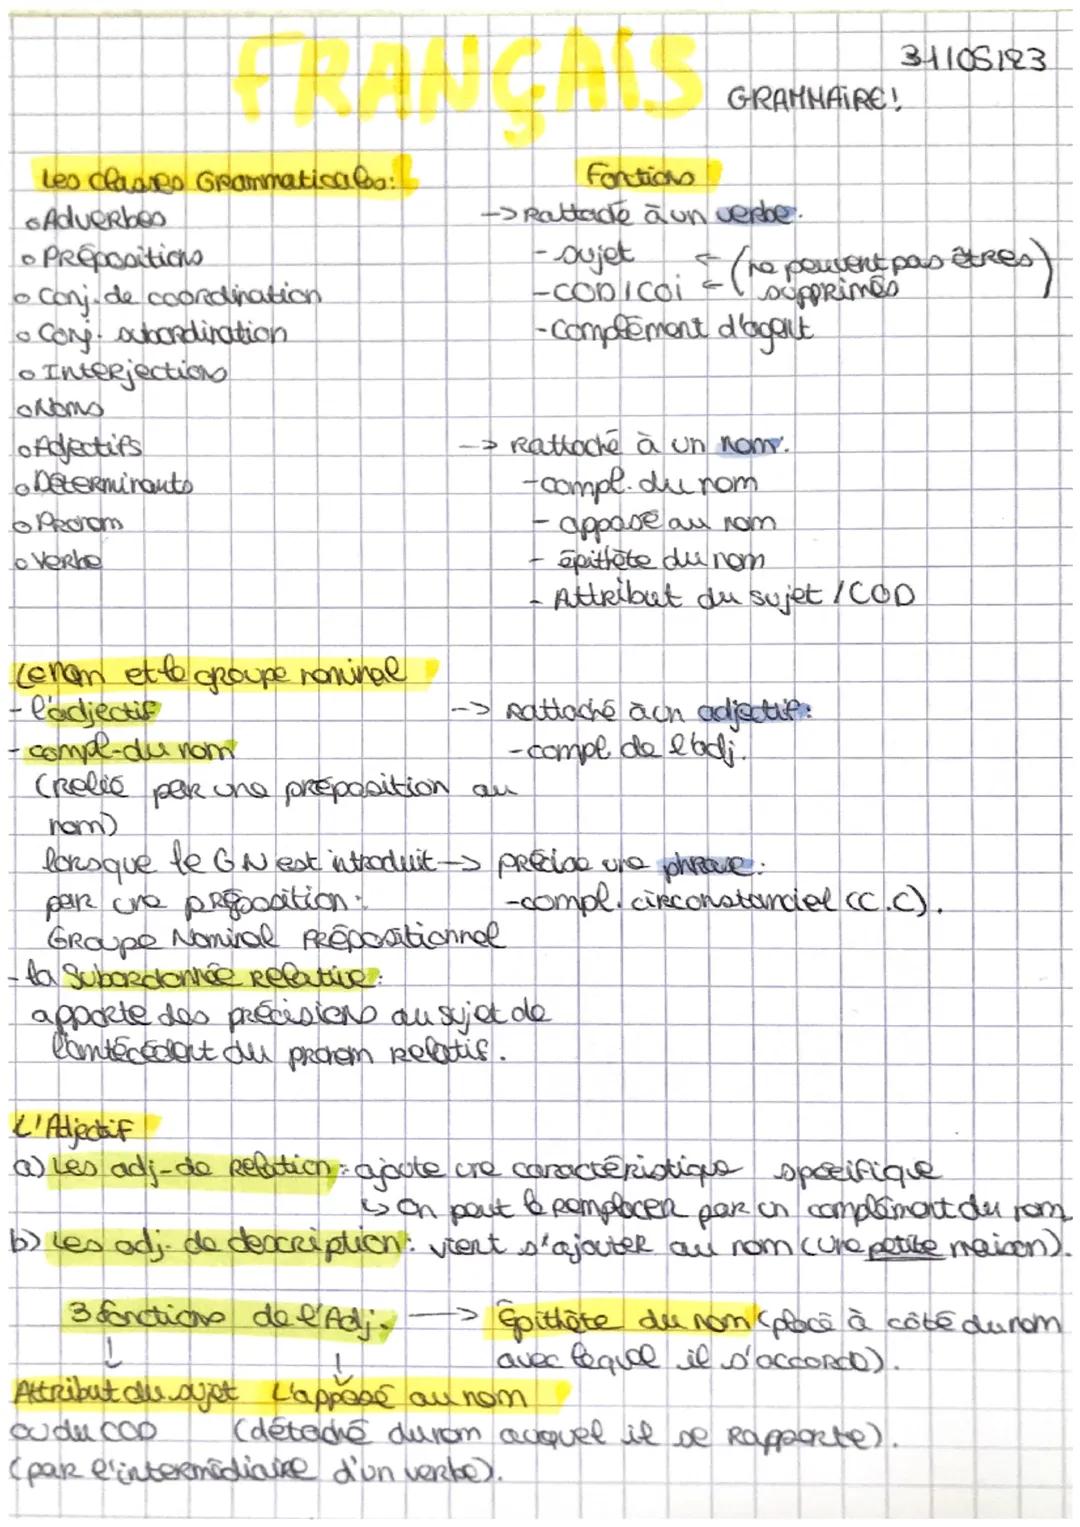 FRANÇAIS
31/05/23
GRAMMAIRE!
Les classes Grammaticales:
Fonctions
o Adverbes
-> Rattaché à un verbe.
o Prépositions
- sujet <- (ne peuvent pas êtres
o Conj. de coordination
- COD/COI <- supprimés)
o Conj. subordination
- Complément d'agent
o Interjections
o Noms
o Adjectifs
-> Rattaché à un nom.
o Déterminants
- compl. du nom
o Pronom
- apposé au nom
o Verbe
- épithète du nom
- Attribut du sujet / COD
Le nom et le groupe nominal
- l'adjectif
-> Rattaché à un adjectif:
- compl. du nom
- compl de l'adj.
(Relié par une préposition au
nom)
lorsque le GN est introduit
-> Précise une phrase:
par une préposition:
- compl. circonstanciel (C.C).
Groupe Nominal Prépositionnel
- la Subordonnée Relative:
apporte des précisions au sujet de
l'antécédent du pronom relatif.
L'Adjectif
a) Les adj. de Relation: ajoute une caractéristique spécifique
↳ On peut le remplacer par un complément du nom
b) Les adj. de description: vient s'ajouter au nom (une petite maison).
3 fonctions de l'Adj. -> Épithète du nom (placé à côté du nom
avec lequel il s'accorde).
Attribut du sujet L'apposé au nom
ou du COD (détaché du nom auquel il se Rapporte).
(par l'intermédiaire d'un verbe).